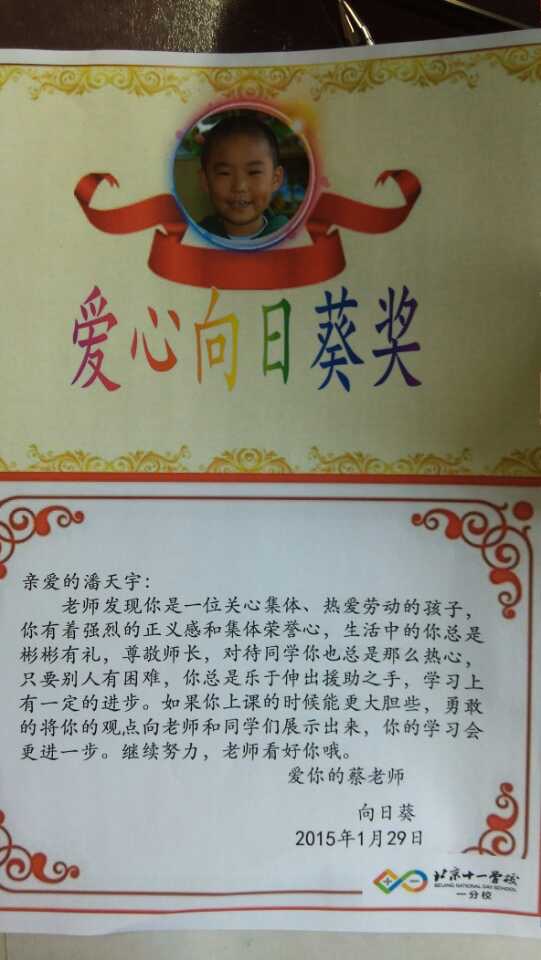 爱心向日葵奖
亲爱的潘天宇：
老师发现你是一位关心集体、热爱劳动的孩子，
你有着强烈的正义感和集体荣誉心，生活中的你总是
彬彬有礼，尊敬师长，对待同学你也总是那么热心，
只要别人有困难，你总是乐于伸出援助之手，学习上
有一定的进步。如果你上课的时候能更大胆些，勇敢
的将你的观点向老师和同学们展示出来，你的学习会
更进一步。继续努力，老师看好你哦。
爱你的蔡老师
向日葵
2015年1月29日
北京十一学校
BEIJING NATIONAL DAY SCHOOL
一分校